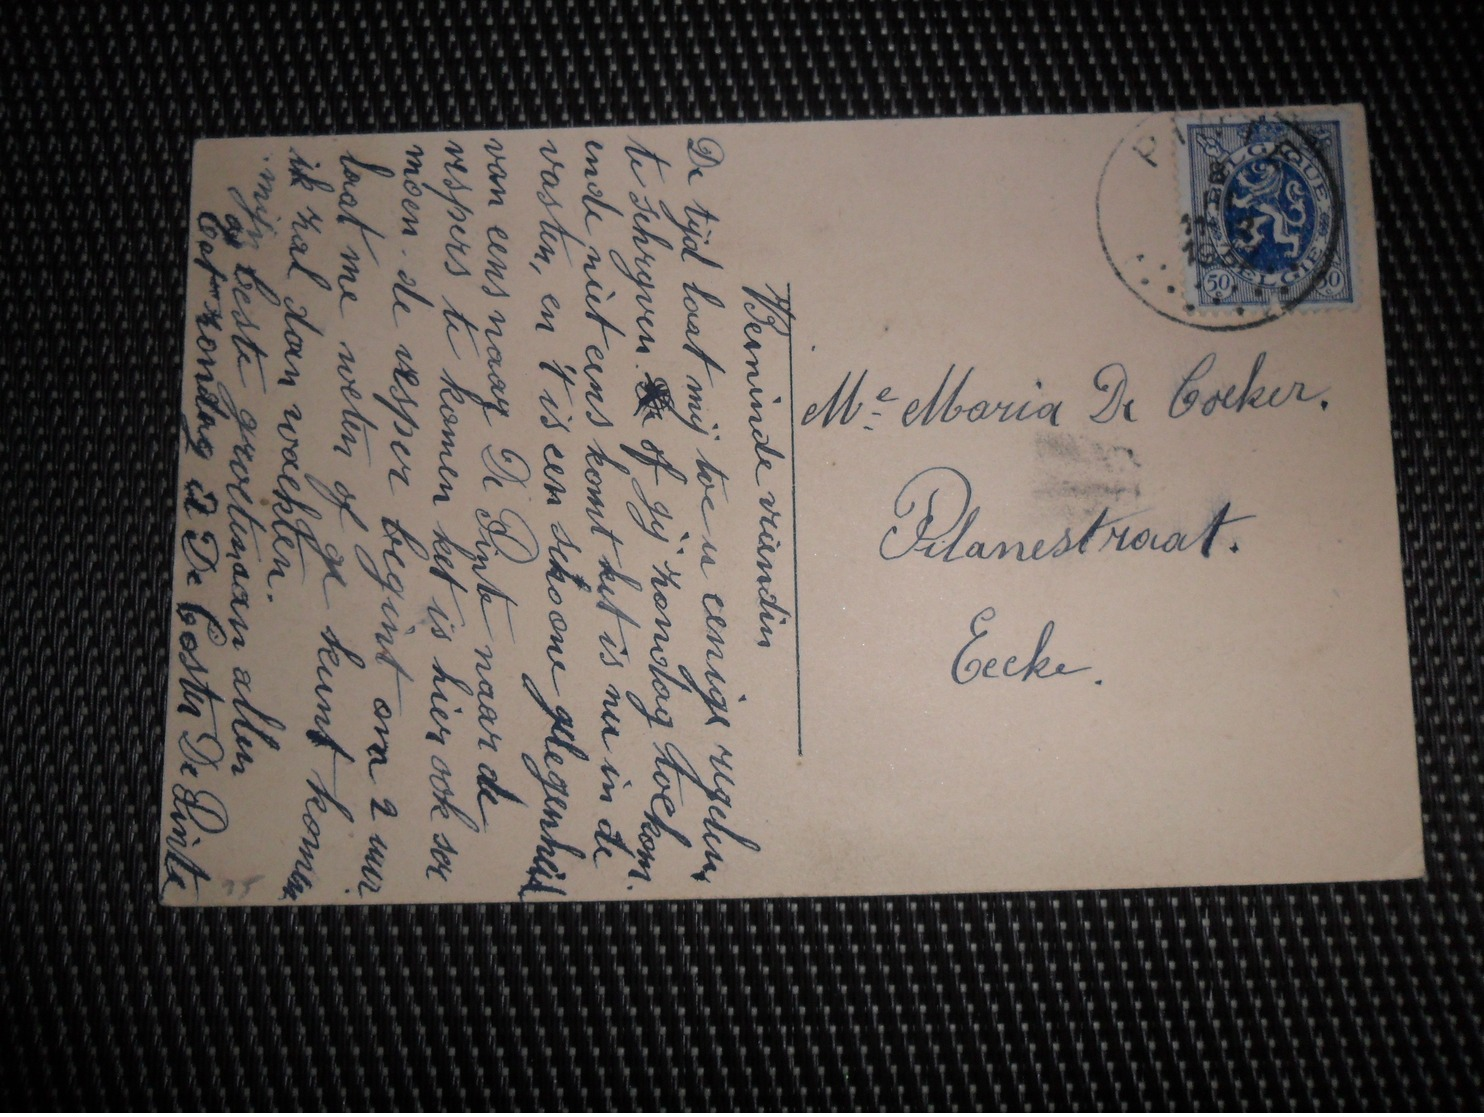 Beminde vriendin
De tijd laat mij toe u eenige regelen
te schryven of gij zondag toekom.
ende niet eens komt het is nu in de
vasten, en 't is een schoone gelegenheid
van eens naar De Pinte naar de
vespers te komen het is hier ook ser
moen. de vesper begint om 2 uur
laat me weten of ge kunt komen
ik zal dan wachten.
mijn beste groetin aan allen
Tot zondag De Coster De Pinte
25
BELGIQUE
BELGIË
50 C
50 C
Me Maria De Coeker.
Pilanestraat.
Eecke.